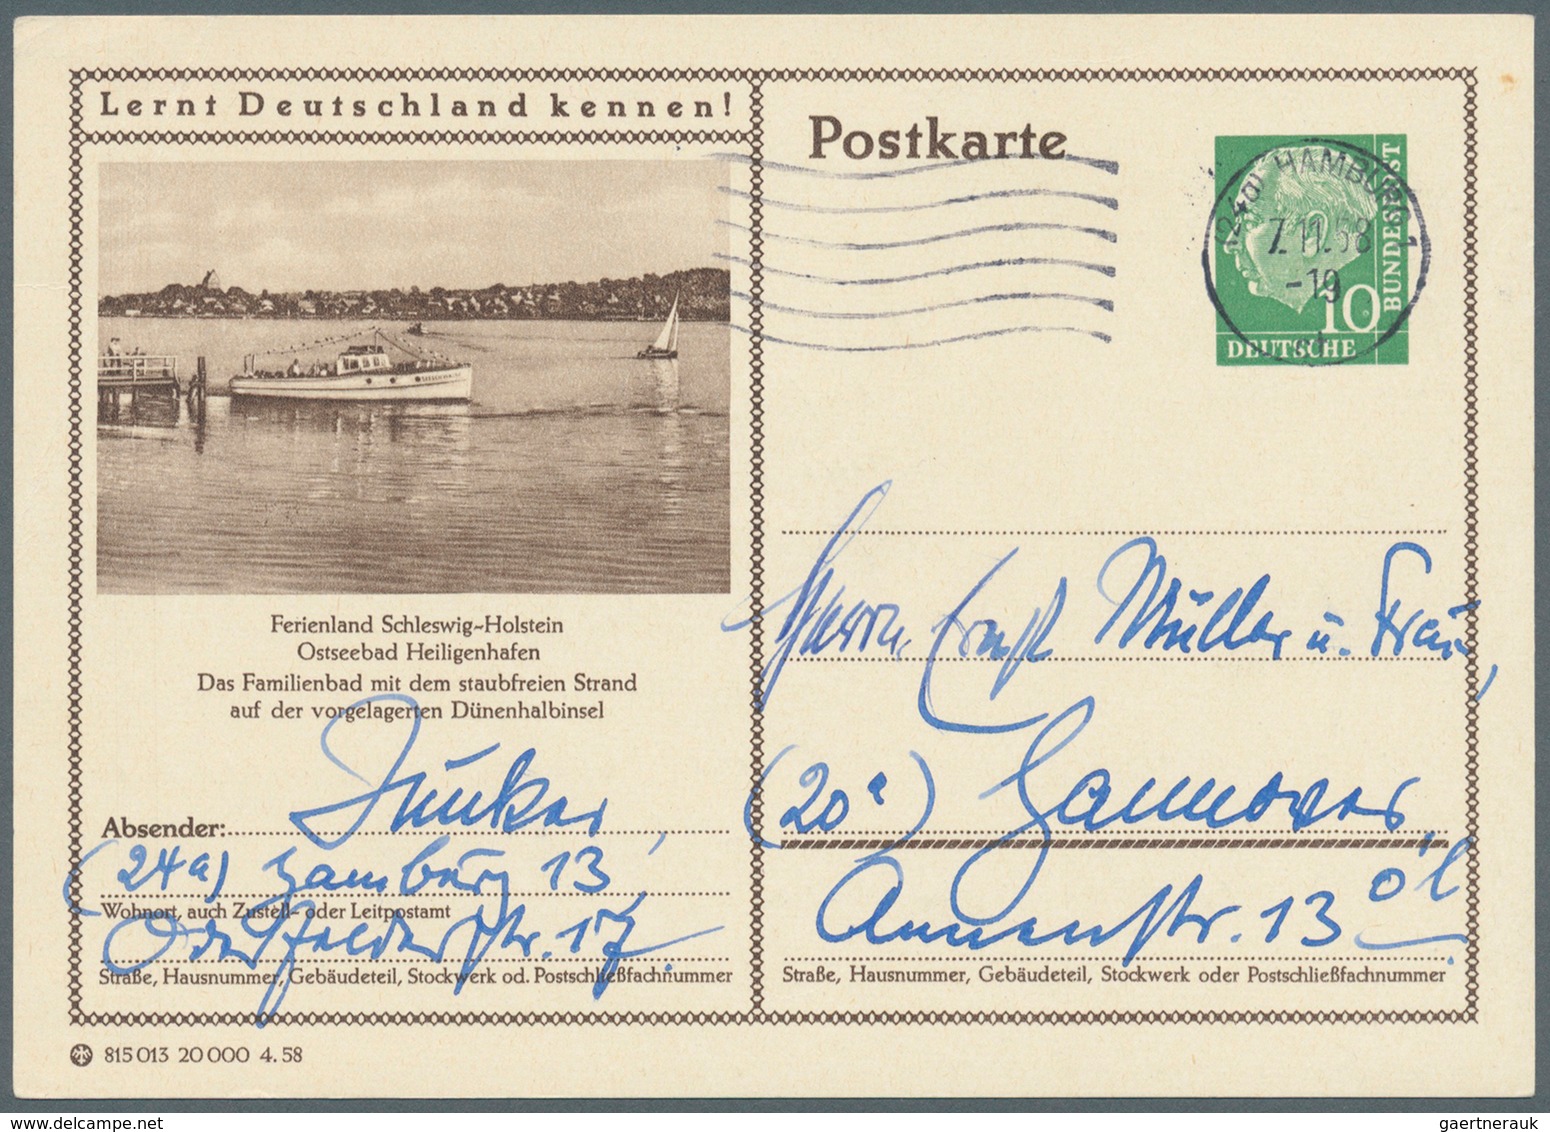 Lernt Deutschland kennen!
Ferienland Schleswig-Holstein
Ostseebad Heiligenhafen
Das Familienbad mit dem staubfreien Strand
auf der vorgelagerten Dünenhalbinsel
Absender: Junker,
(24a) Hamburg 13,
Wohnort, auch Zustell- oder Leitpostamt
Oderfelderstr. 17.
Straße, Hausnummer, Gebäudeteil, Stockwerk od. Postschließfachnummer
815 013 20 000 4. 58
Postkarte
(24a) HAMBURG 1
7.11.58
-19
10
DEUTSCHE
BUNDESPOST
Herrn Ernst Müller u. Frau,
(20a) Hannover,
Annenstr. 13
Straße, Hausnummer, Gebäudeteil, Stockwerk oder Postschließfachnummer
gaertnerauk